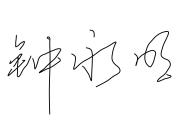 钟永明